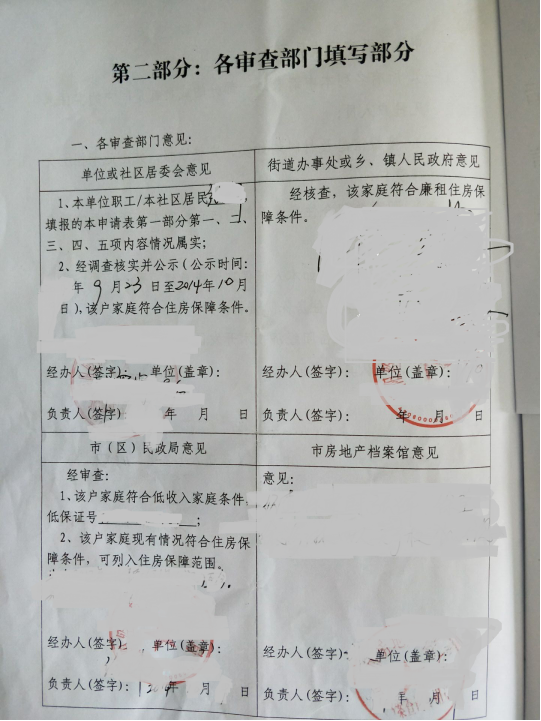 第二部分：各审查部门填写部分
一、各审查部门意见：
单位或社区居委会意见
1、本单位职工/本社区居民
填报的本申请表第一部分第一、二、
三、四、五项内容情况属实；
2、经调查核实并公示（公示时间：
年9月23日至2014年10月
日），该户家庭符合住房保障条件。
经办人(签字)： 单位(盖章)：
负责人(签字) 年 月 日
街道办事处或乡、镇人民政府意见
经核查，该家庭符合廉租住房保
障条件。
经办人(签字)： 单位(盖章)：
负责人(签字)： 年 月 日
市（区）民政局意见
经审查：
1、该户家庭符合低收入家庭条件，
低保证号；
2、该户家庭现有情况符合住房保
障条件，可列入住房保障范围。
经办人(签字) 单位(盖章)：
负责人(签字)： 年 月 日
市房地产档案馆意见
意见：
经办人(签字) 单位(盖章)：
负责人(签字)： 年 月 日